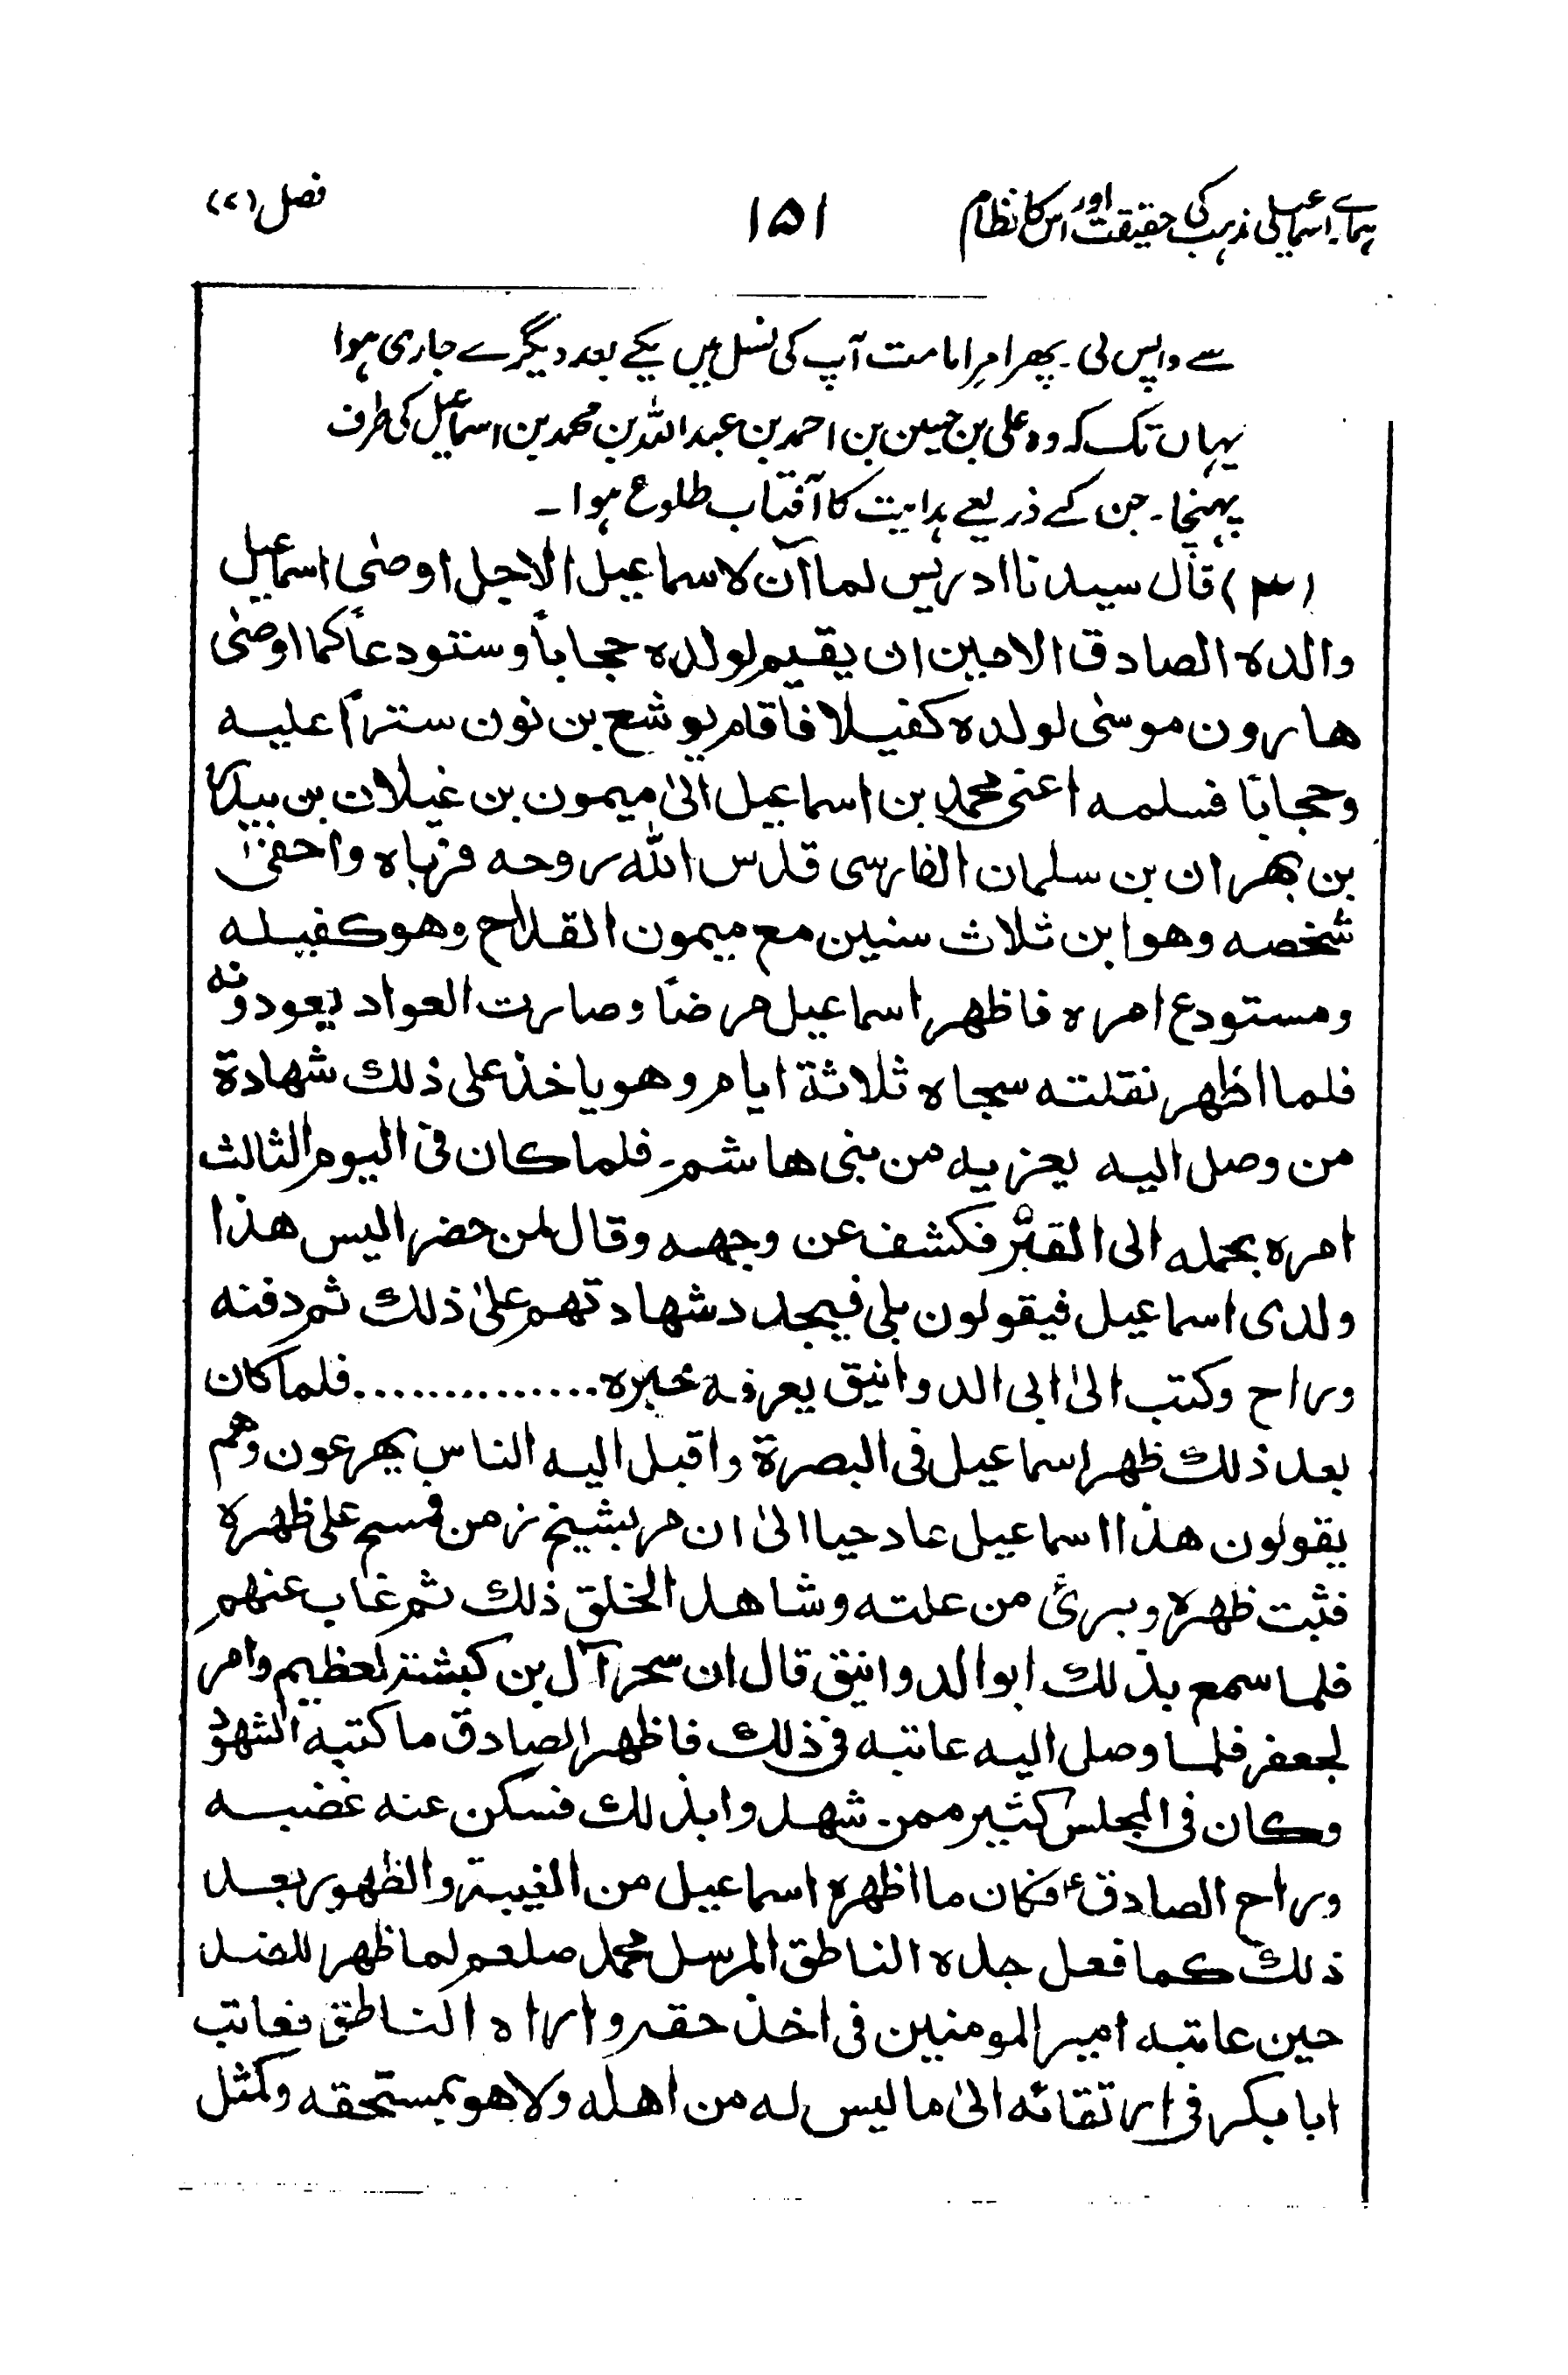 ہمارے اسماعیلی مذہب کی حقیقت اور اس کا نظام ۱۵۱ فصل (۷)
سے واپس لی۔ پھر امرِ امامت آپ کی نسل میں یکے بعد دیگرے جاری ہوا
یہاں تک کہ وہ علی بن حسین بن احمد بن عبد اللہ بن محمد بن اسماعیل کی طرف
پہنچا۔ جن کے ذریعے ہدایت کا آفتاب طلوع ہوا۔
(۳) قال سیدنا ادریس لما آن لاسماعیل الاجل اوصٰی اسماعیل
والده الصادق الامین ان یقیم لولده حجاباً وستودعاً کما اوصٰی
هارون موسٰی لولده کفیلا فاقام یوشع بن نون ستراً علیه
وحجابًا فسلمه اعنی محمد بن اسماعیل الیٰ میمون بن غیلان بن بیدر
بن بهران بن سلمان الفارسی قدس الله روحه فرباه واخفیٰ
شخصه وهو ابن ثلاث سنین مع میمون القداح وهو کفیله
ومستودع امره فاظهر اسماعیل مرضًا وصارت العواد یعودونه
فلما اظهر نقلته سجاه ثلاثة ایام وهو یاخذ علی ذلك شهادة
من وصل الیه یعزیه من بنی هاشم۔ فلما کان فی الیوم الثالث
امره بحمله الی القبر فکشف عن وجهه وقال لمن حضر الیس هذا
ولدی اسماعیل فیقولون بلی فیجدد شهادتهم علیٰ ذلك ثم دفنه
وراح وکتب الیٰ ابی الدوانیق یعرفه خبره.............. فلما کان
بعد ذلك ظهر اسماعیل فی البصرة واقبل الیه الناس یهرعون وهم
یقولون هذا اسماعیل عاد حیا الیٰ ان مر بشیخ زمن فمسح علی ظهره
فثبت ظهره وبرئ من علته وشاهد الخلق ذلك ثم غاب عنهم
فلما سمع بذلك ابو الدوانیق قال ان سحر آل بن کبشة لعظیم وامر
لجعفر فلما وصل الیه عاتبه فی ذلك فاظهر الصادق ما کتبه الشهود
وکان فی المجلس کثیر ممن شهدوا بذلك فسکن عنه غضبه
وراح الصادقؑ فکان ما اظهره اسماعیل من الغیبة والظهور بعد
ذلك کما فعل جده الناطق المرسل محمد صلعم لما ظهر للضد
حین عاتبه امیر المومنین فی اخذ حقه واراه الناطق فعاتب
ابا بکر فی ارتقائه الیٰ ما لیس له من اهله ولا هو بمستحقه وکمثل